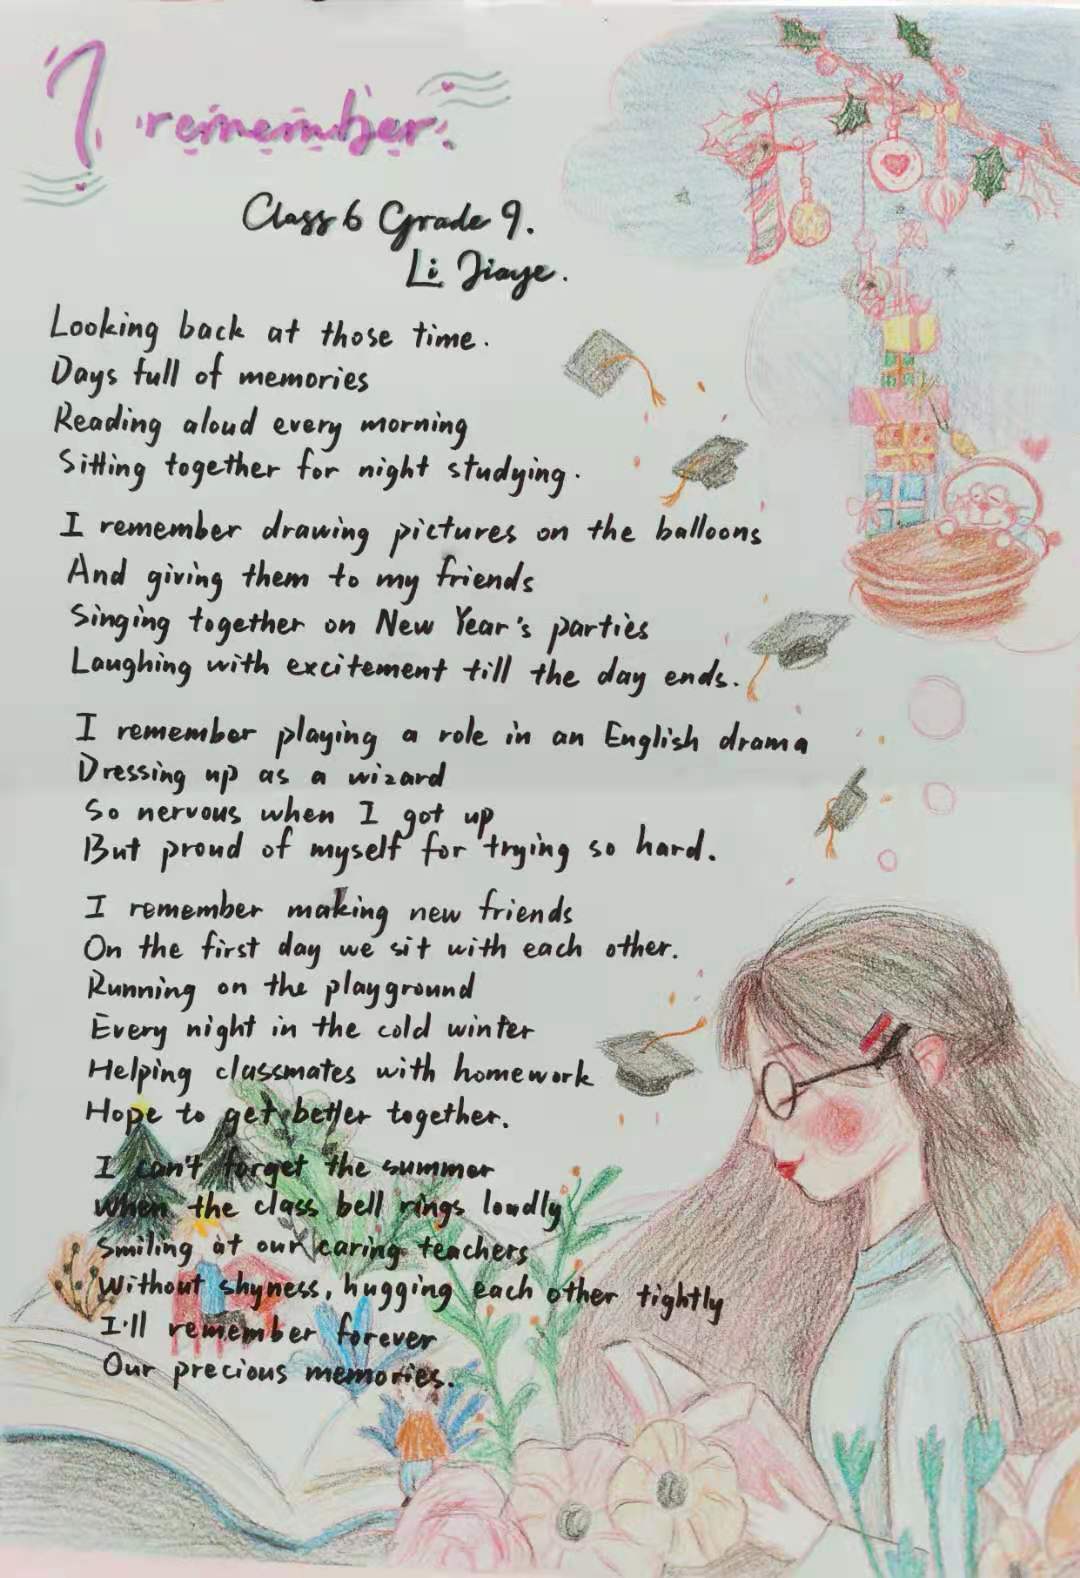 I remember
Class 6 Grade 9.
Li Jiaye.
Looking back at those time.
Days full of memories
Reading aloud every morning
Sitting together for night studying.
I remember drawing pictures on the balloons
And giving them to my friends
Singing together on New Year's parties
Laughing with excitement till the day ends.
I remember playing a role in an English drama
Dressing up as a wizard
So nervous when I got up
But proud of myself for trying so hard.
I remember making new friends
On the first day we sit with each other.
Running on the playground
Every night in the cold winter
Helping classmates with homework
Hope to get better together.
I can't forget the summer
When the class bell rings loudly
Smiling at our caring teachers
Without shyness, hugging each other tightly
I'll remember forever
Our precious memories.